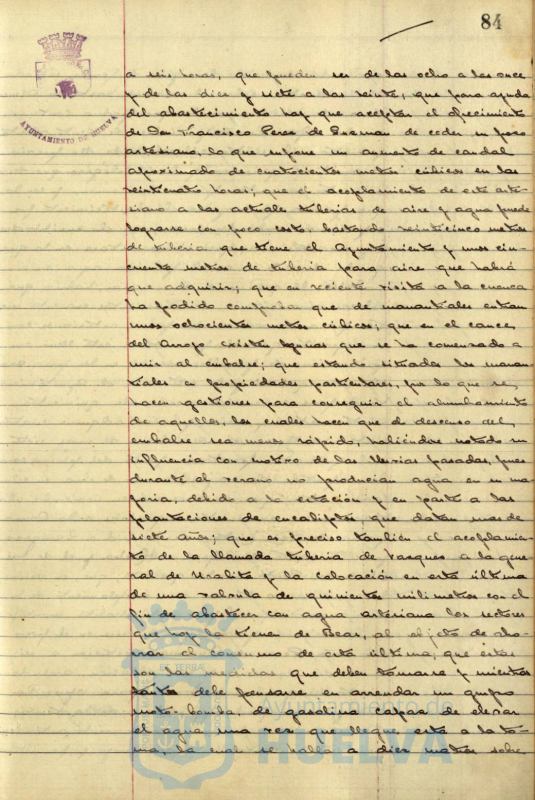 84
AYUNTAMIENTO DE HUELVA
a seis horas, que pueden ser de las ocho a las once
y de las diez y siete a las veinte; que para ayuda
del abastecimiento hay que aceptar el ofrecimiento
de Don Francisco Perez de Guzman de ceder su pozo
artesiano, lo que supone un aumento de caudal
aproximado de cuatrocientos metros cúbicos en las
veinticuatro horas; que el acoplamiento de este arte-
siano a las actuales tuberias de aire y agua puede
lograrse con poco costo, bastando veinticinco metros
de tuberia que tiene el Ayuntamiento y unos cin-
cuenta metros de tuberia para aire que habrá
que adquirir; que en reciente visita a la cuenca
ha podido comprobar que de manantiales entran
unos ochocientos metros cúbicos; que en el cauce
del Arroyo existen que se ha comenzado a
unir al embalse; que estando situados los manan-
tiales en propiedades particulares, por lo que se
hacen gestiones para conseguir el alumbramiento
de aquellos, los cuales hacen que el descenso del
embalse sea menos rápido, habiéndose notado su
influencia con motivo de las lluvias pasadas, pues
durante el verano no producian agua en su ma-
yoria, debido a la estación y en parte a las
plantaciones de eucaliptos, que datan mas de
siete años; que es preciso tambien el acoplamien-
to de la llamada tuberia de Vazquez a la gene-
ral de Uralita y la colocación en esta última
de una valvula de quinientos milimetros con el
fin de abastecer con agua artesiana los sectores
que hoy la tienen de Beas, al objeto de aho-
rrar el consumo de esta última; que éstas
son las medidas que deben tomarse y mientras
tanto debe pensarse en arrendar un grupo
moto-bomba, de gasolina capaz de elevar
el agua una vez que llegue esta a la to-
ma, la cual se halla a diez metros sobre
Ayuntamiento de
HUELVA